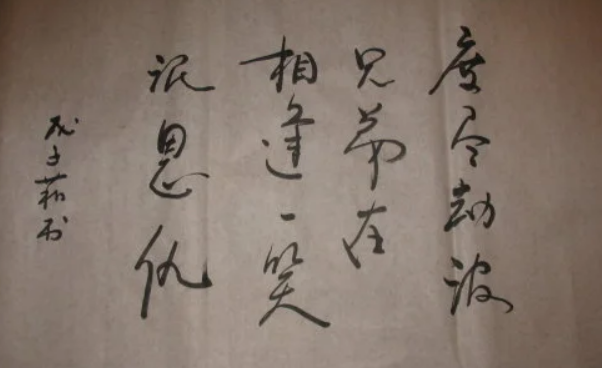 度尽劫波
兄弟在
相逢一笑
泯恩仇
戊子